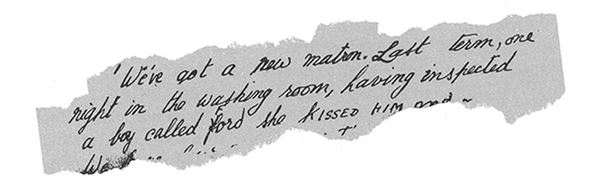 'We've got a new matron. Last term, one
night in the washing room, having inspected
a boy called ford she KISSED HIM and
We